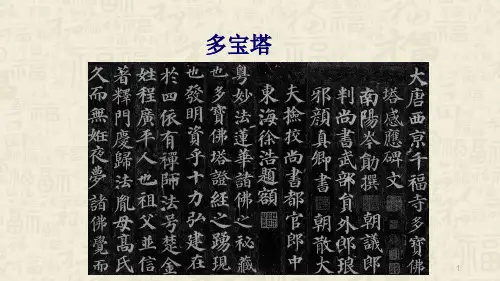 多宝塔
大唐西京千福寺多寶佛
塔感應碑文
南陽岑勛撰 朝議郎
判尚書武部員外郎琅
邪顏真卿書 朝散大
夫撿挍尚書都官郎中
東海徐浩題額
粵妙法蓮華諸佛之秘藏
也多寶佛塔證經之踴現
也發明資乎十力弘建在
於四依有禪師法号楚金
姓程廣平人也祖父並信
著釋門慶歸法胤母高氏
久而無姙夜夢諸佛覺而
1